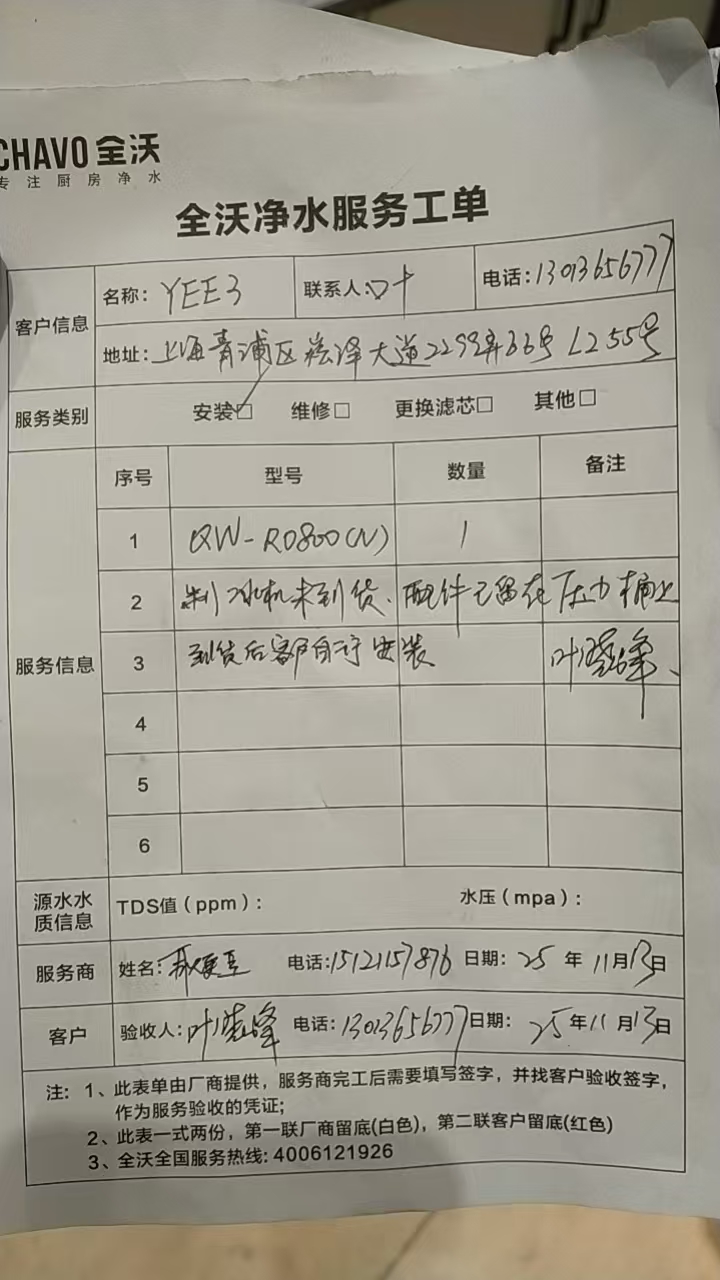 CHAVO 全沃
专注厨房净水
全沃净水服务工单
客户信息
名称: YEE3 联系人: 叶 电话: 13013656777
地址: 上海青浦区崧泽大道2299弄33号 L255号
服务类别 安装☑ 维修□ 更换滤芯□ 其他□
服务信息
序号 型号 数量 备注
1 QW-RO800(N) 1
2 制冰机未到货、配件已留在压力桶上
3 到货后客户自行安装 叶晓峰、
4
5
6
源水水质信息 TDS值（ppm）: 水压（mpa）:
服务商 姓名: 电话: 15121157876 日期: 25 年 11月13日
客户 验收人: 叶晓峰 电话: 13013656777 日期: 25年11月13日
注: 1、此表单由厂商提供，服务商完工后需要填写签字，并找客户验收签字，
作为服务验收的凭证;
2、此表一式两份，第一联厂商留底(白色)，第二联客户留底(红色)
3、全沃全国服务热线: 4006121926